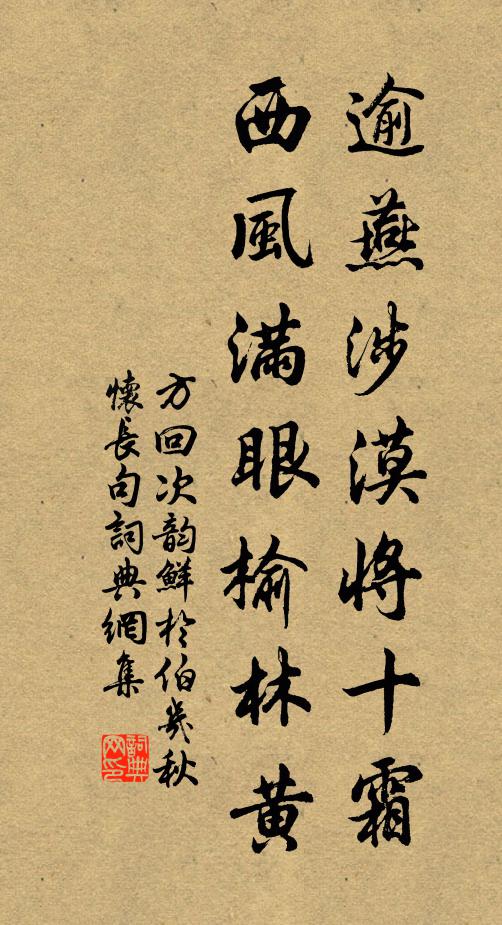 逾燕涉漠將十霜
西風滿眼榆林黃
方回次韵鮮於伯幾秋
懷長句詞典網集
詞典網印